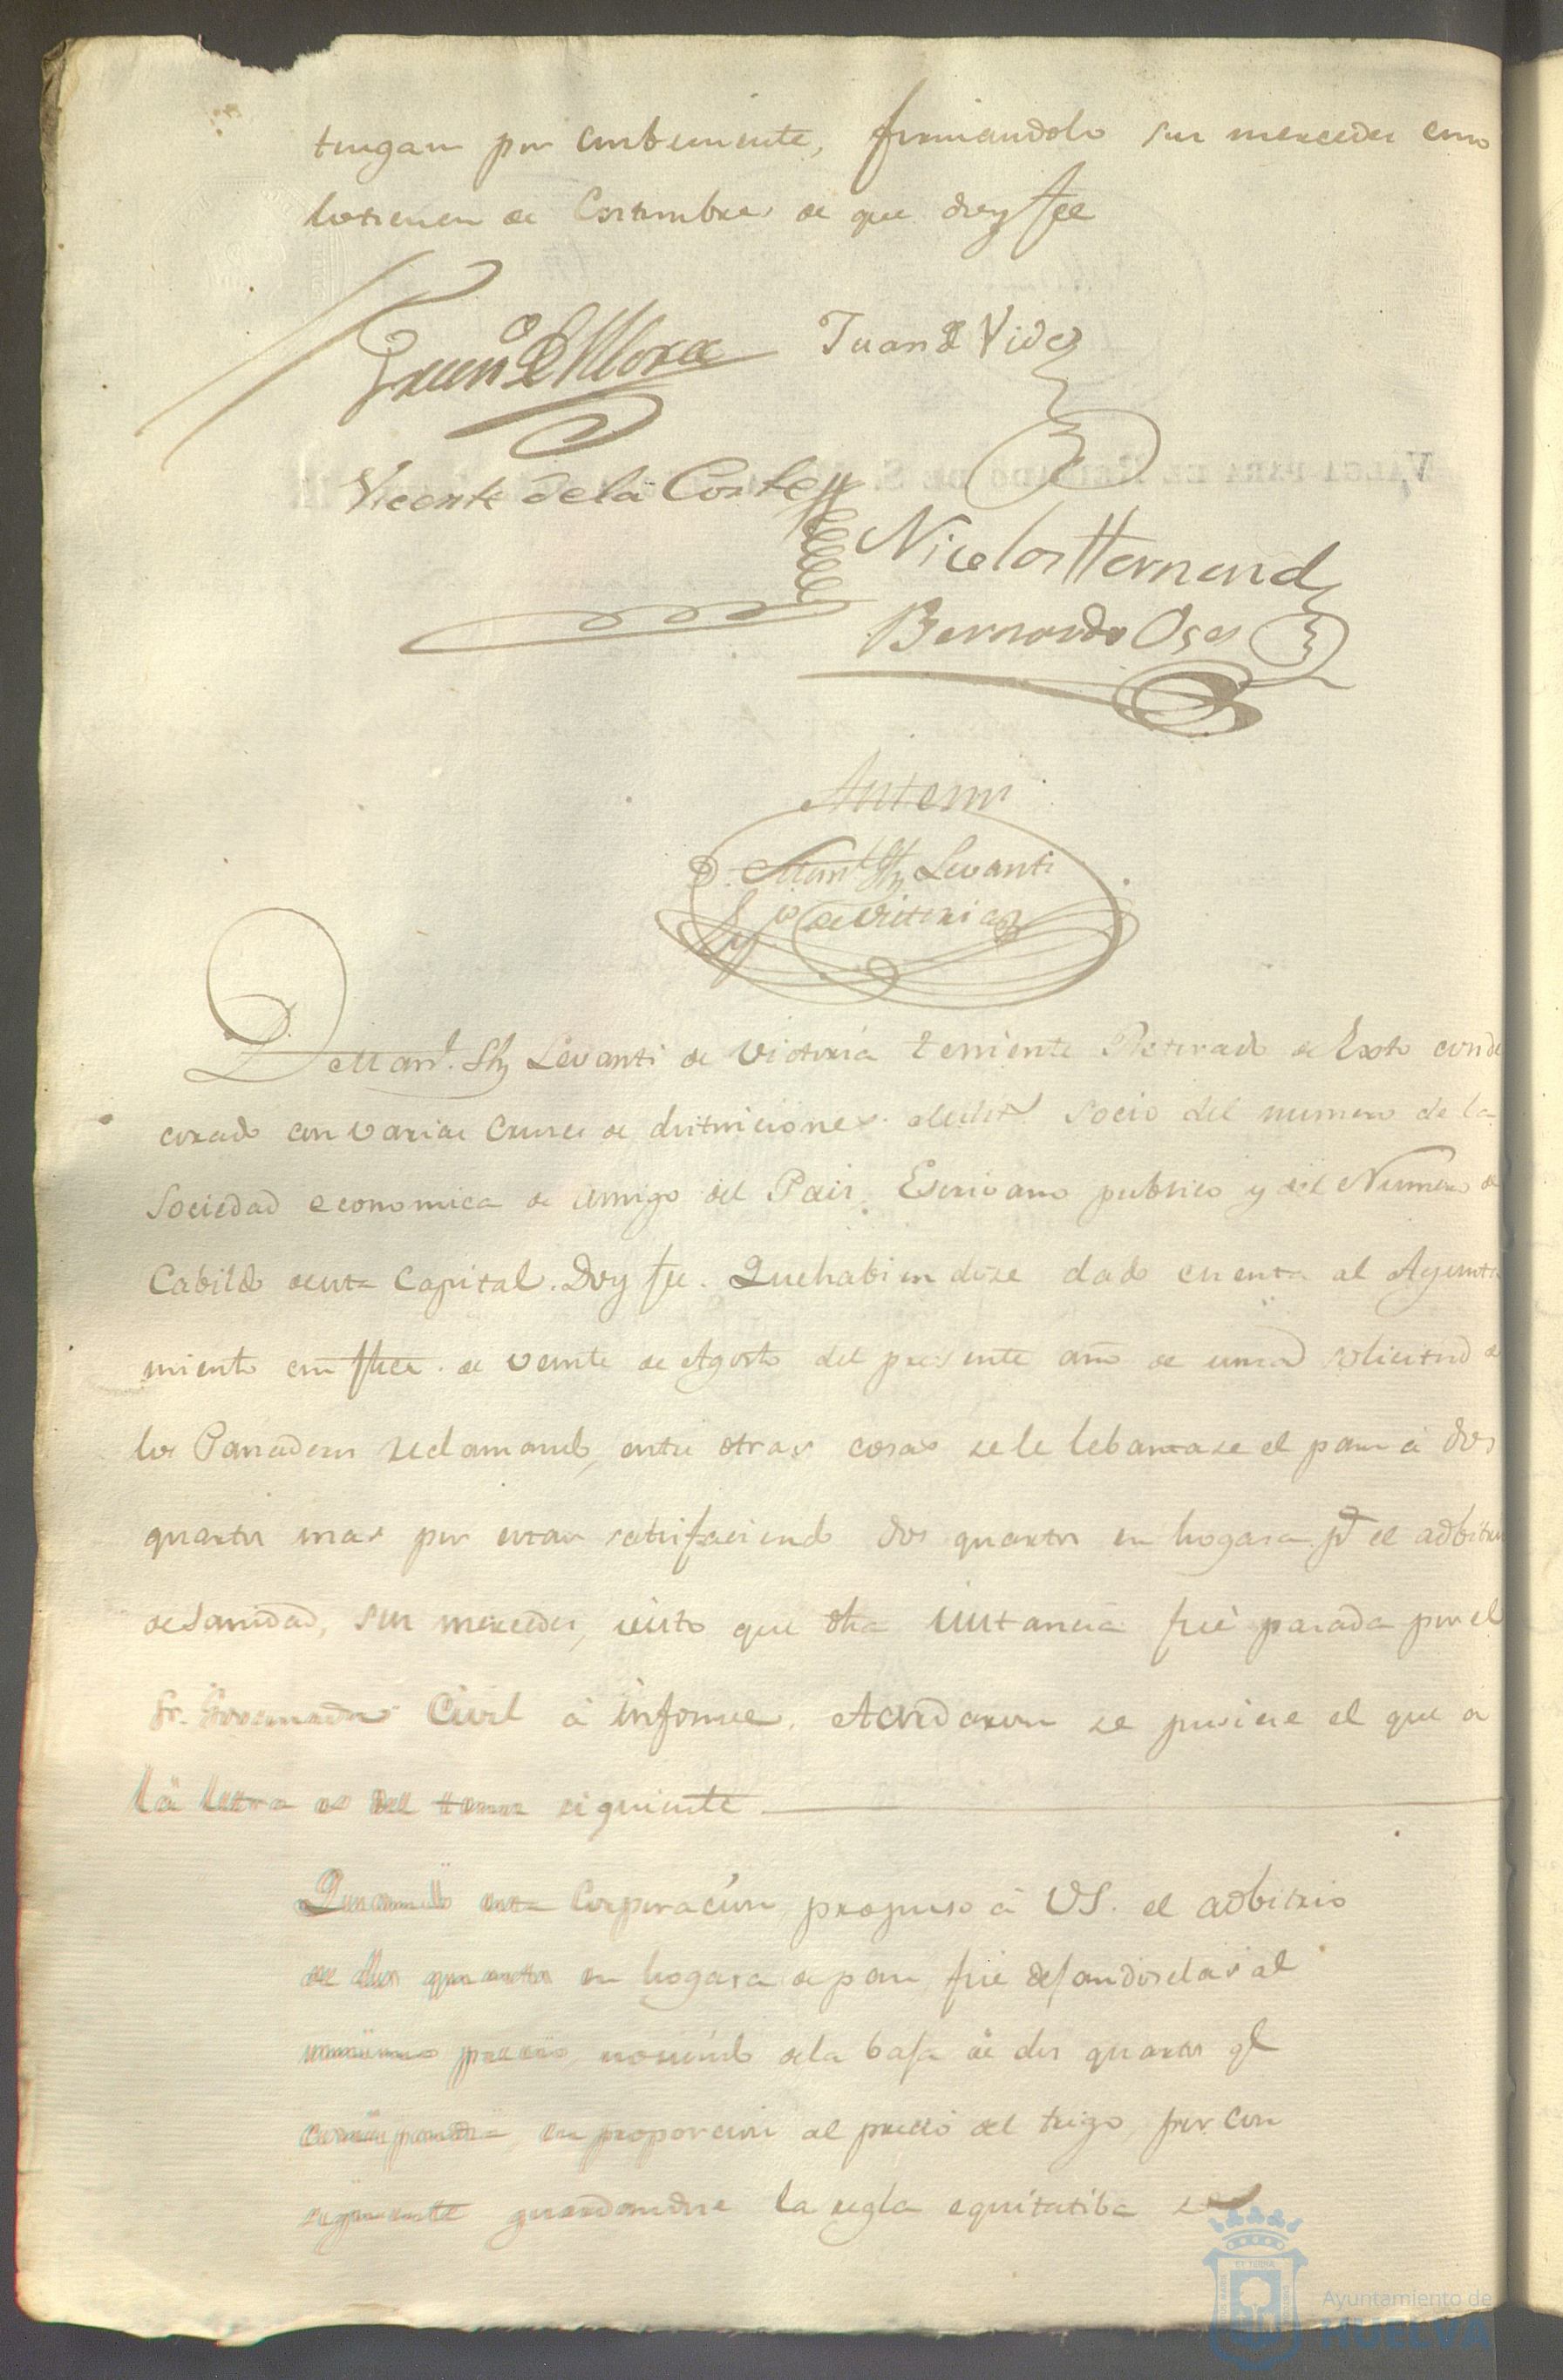 tengan por combeniente, firmandolo sus mercedes como
lo tienen de Costumbre, de que doy fee
Juan de Vides
Vicente dela Corte
Nicolas Hernand
Bernardo Oses
Antemi
Man.l Sz Levanti
de Victoria
D. Man.l Sz Levanti de Victoria teniente Retirado de Exto conde
corado con varias Cruces de distinciones socio del numero de la
Sociedad economica de amigo del Pais. Escrivano publico y del Numero de
Cabildo de esta Capital. Doy fee. Que habiendose dado cuenta al Ayunta
miento en fha. de veinte de Agosto del presente año de una solicitud de
los Panaderos reclamando, entre otras cosas se le lebantase el pan á dos
quartos mas por estar satisfaciendo dos quartos en hogasa pr el adbitrio
de Sanidad, sus mercedes, visto que dha instancia fué pasada por el
Sr. Governador Civil á informe. Acordaron se pusiese el que a
la letra es del tenor siguiente
Quando esta Corporacion propuso á VS. el adbitrio
de dos quartos en hogasa de pan, fué dejandoselas al
mismo precio, no siendo dela baja de dos quartos ql
correspondia, en proporcion al precio del trigo, por con
siguiente guardandose la regla equitatiba se
Ayuntamiento de
HUELVA